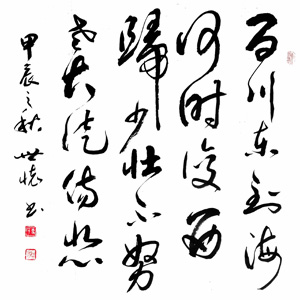 百川东到海
何时复西
归少壮不努
老大徒伤悲
甲辰之秋 世怀书